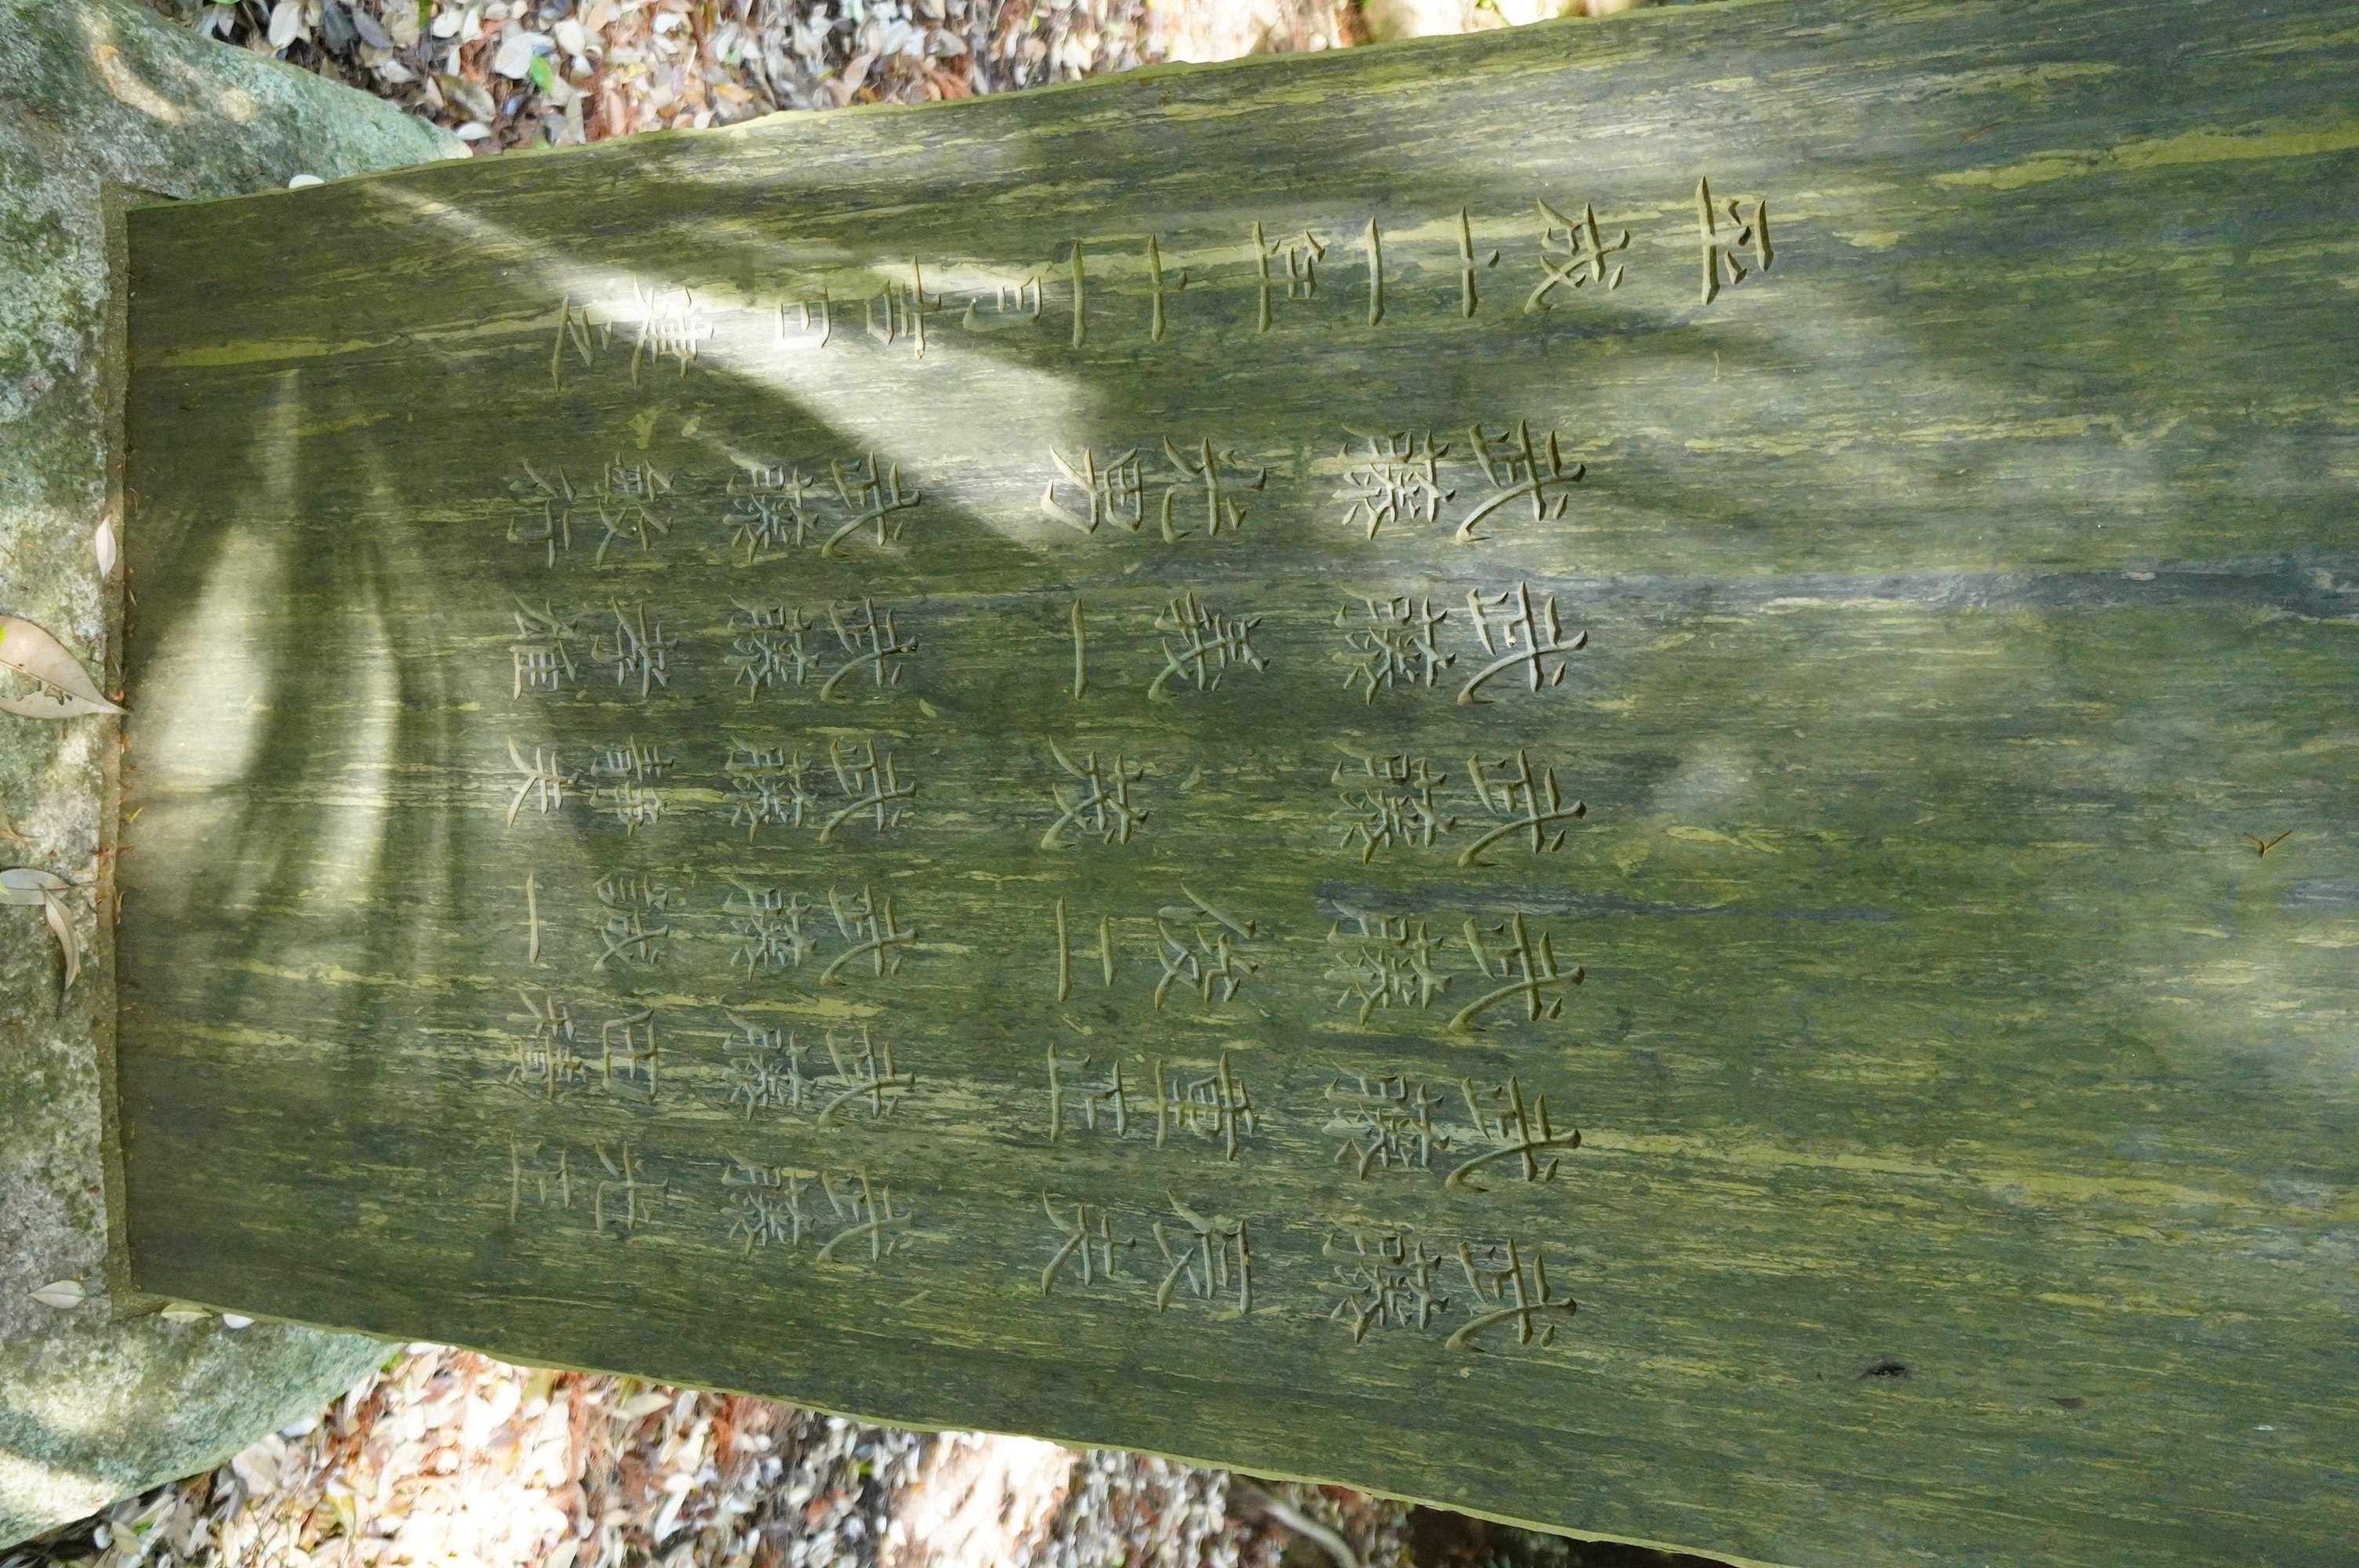 武藤辰夫
武藤重正
武藤俊二
武藤茂
武藤義一
武藤光男
武藤正
武藤
武藤誠一
武藤博夫
武藤孝雄
武藤敏行
平成十一年十一月吉日建之